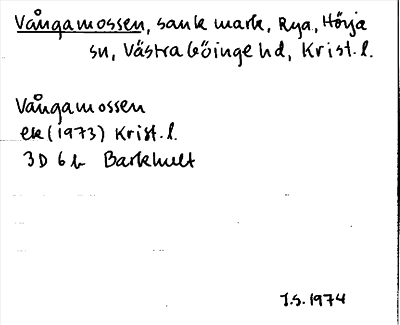 Vångamossen, sank mark, Rya, Hörja
sn, Västra Göinge hd, Krist. l.
Vångamossen
ek (1973) Krist. l.
3D 6b Barkhult
J.S. 1974